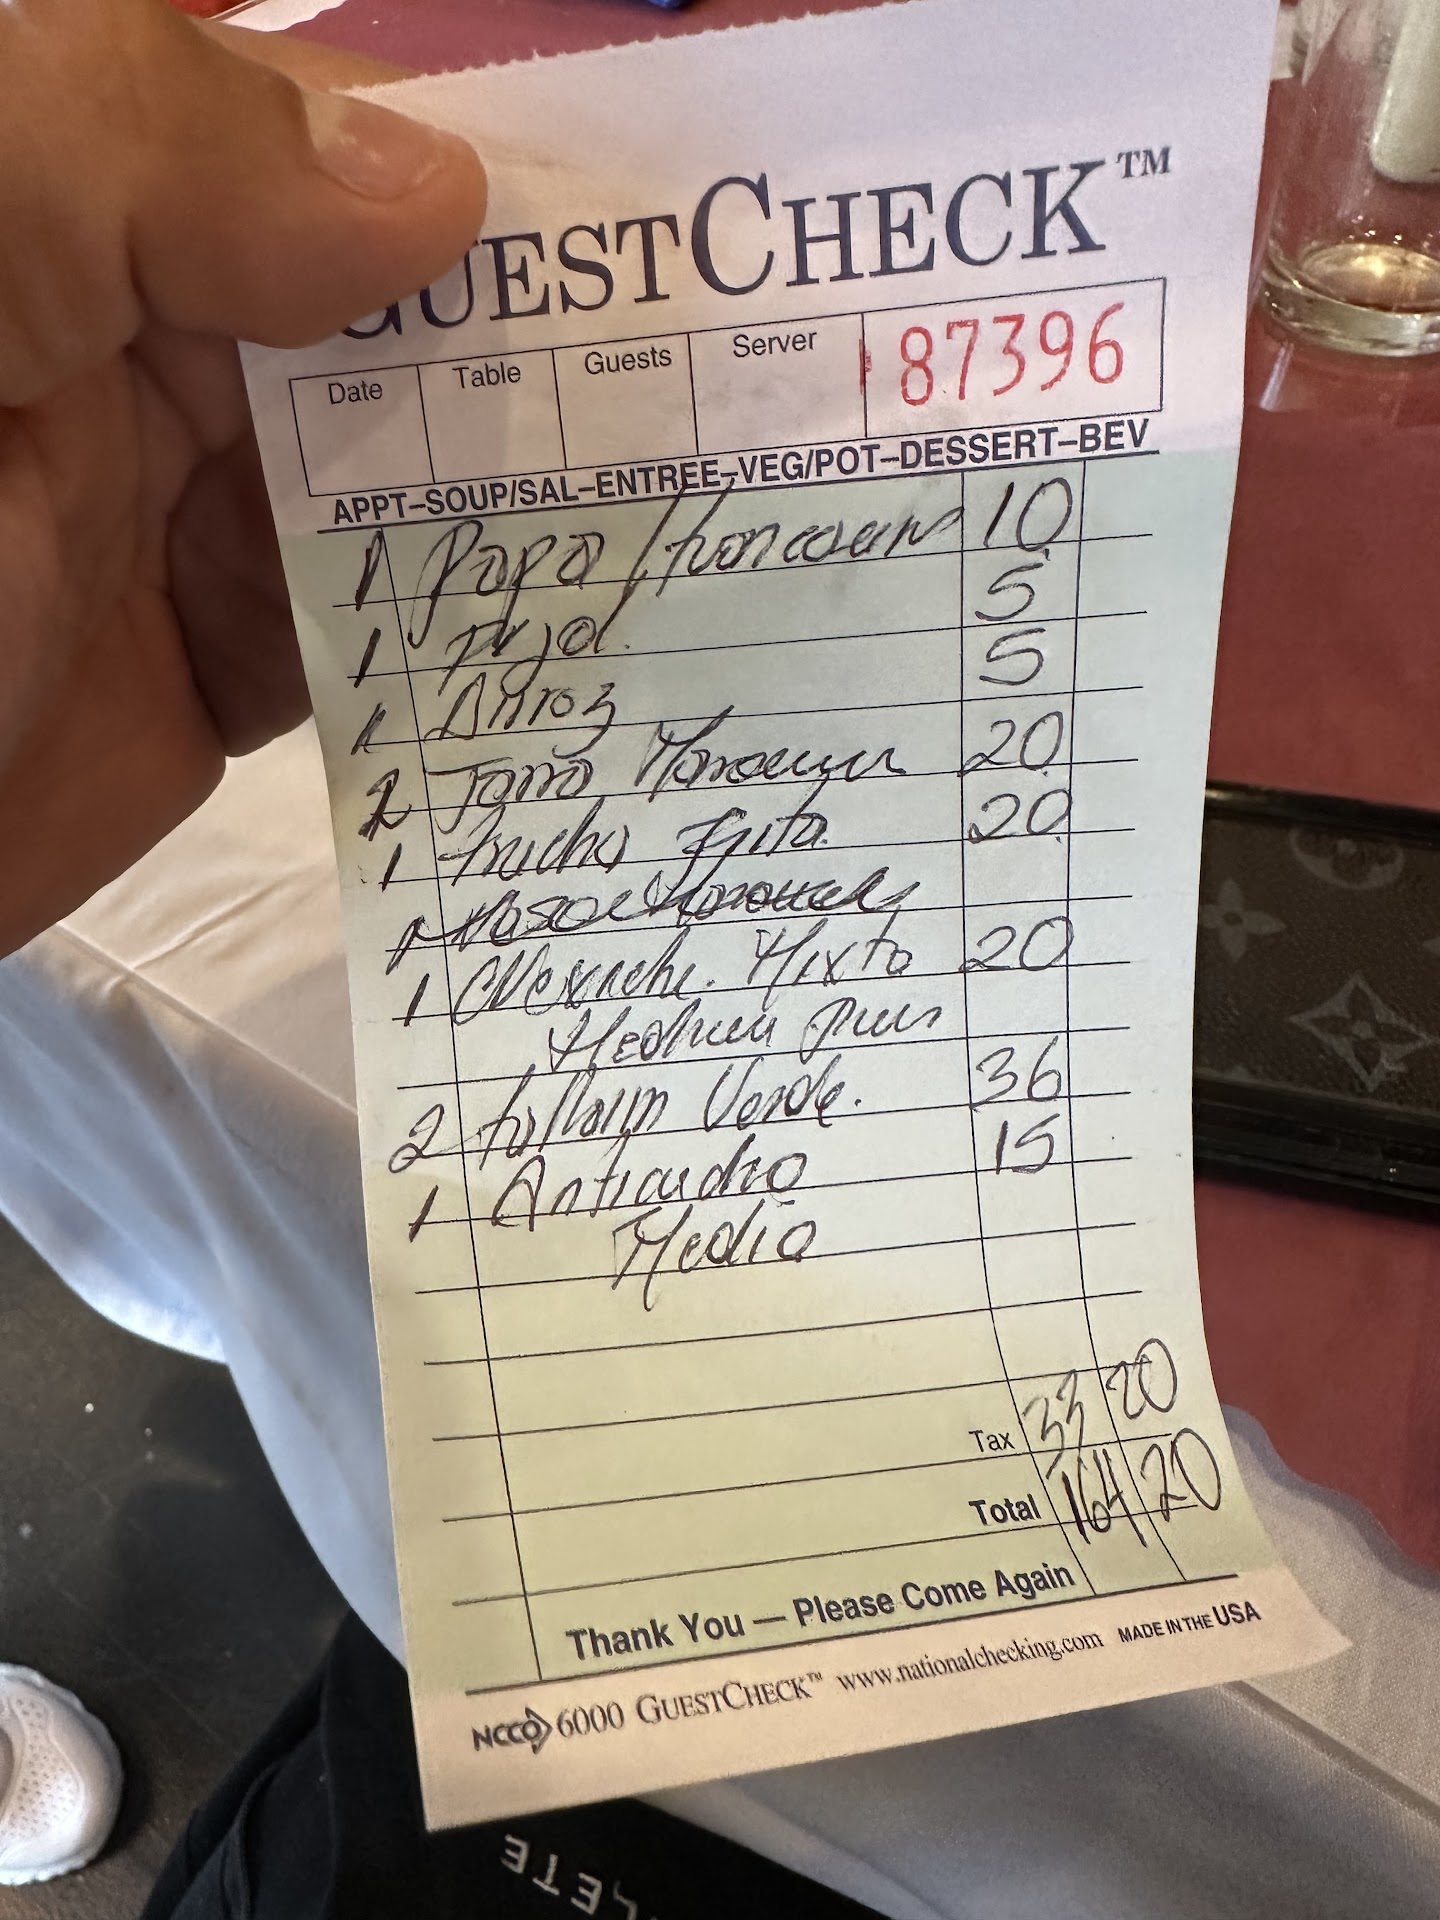 GUESTCHECK™
Date Table Guests Server 87396
APPT–SOUP/SAL–ENTREE–VEG/POT–DESSERT–BEV
1 Papa Huancaina 10
1 5
1 Arroz 5
2 Jarra 20
1 Trucha Frita 20
1
1 Mixto 20
Medium
2 Verde. 36
1 Anticucho 15
Medio
Tax 33 20
Total 164 20
Thank You — Please Come Again
NCCO 6000 GUESTCHECK™ www.nationalchecking.com MADE IN THE USA
LETE